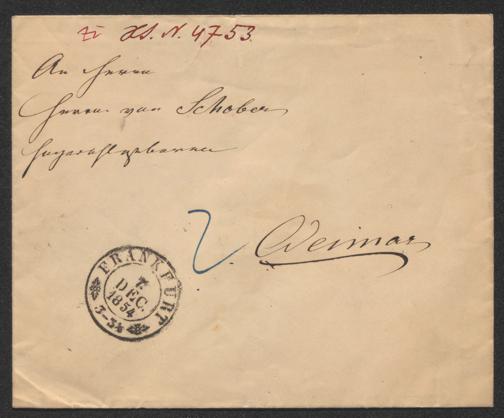 zu H.I.N. 4753
An Herrn
Herrn von Schober
Hochwohlgeboren
2.
Weimar
FRANKFURT
7.
DEC.
1854
3-3½